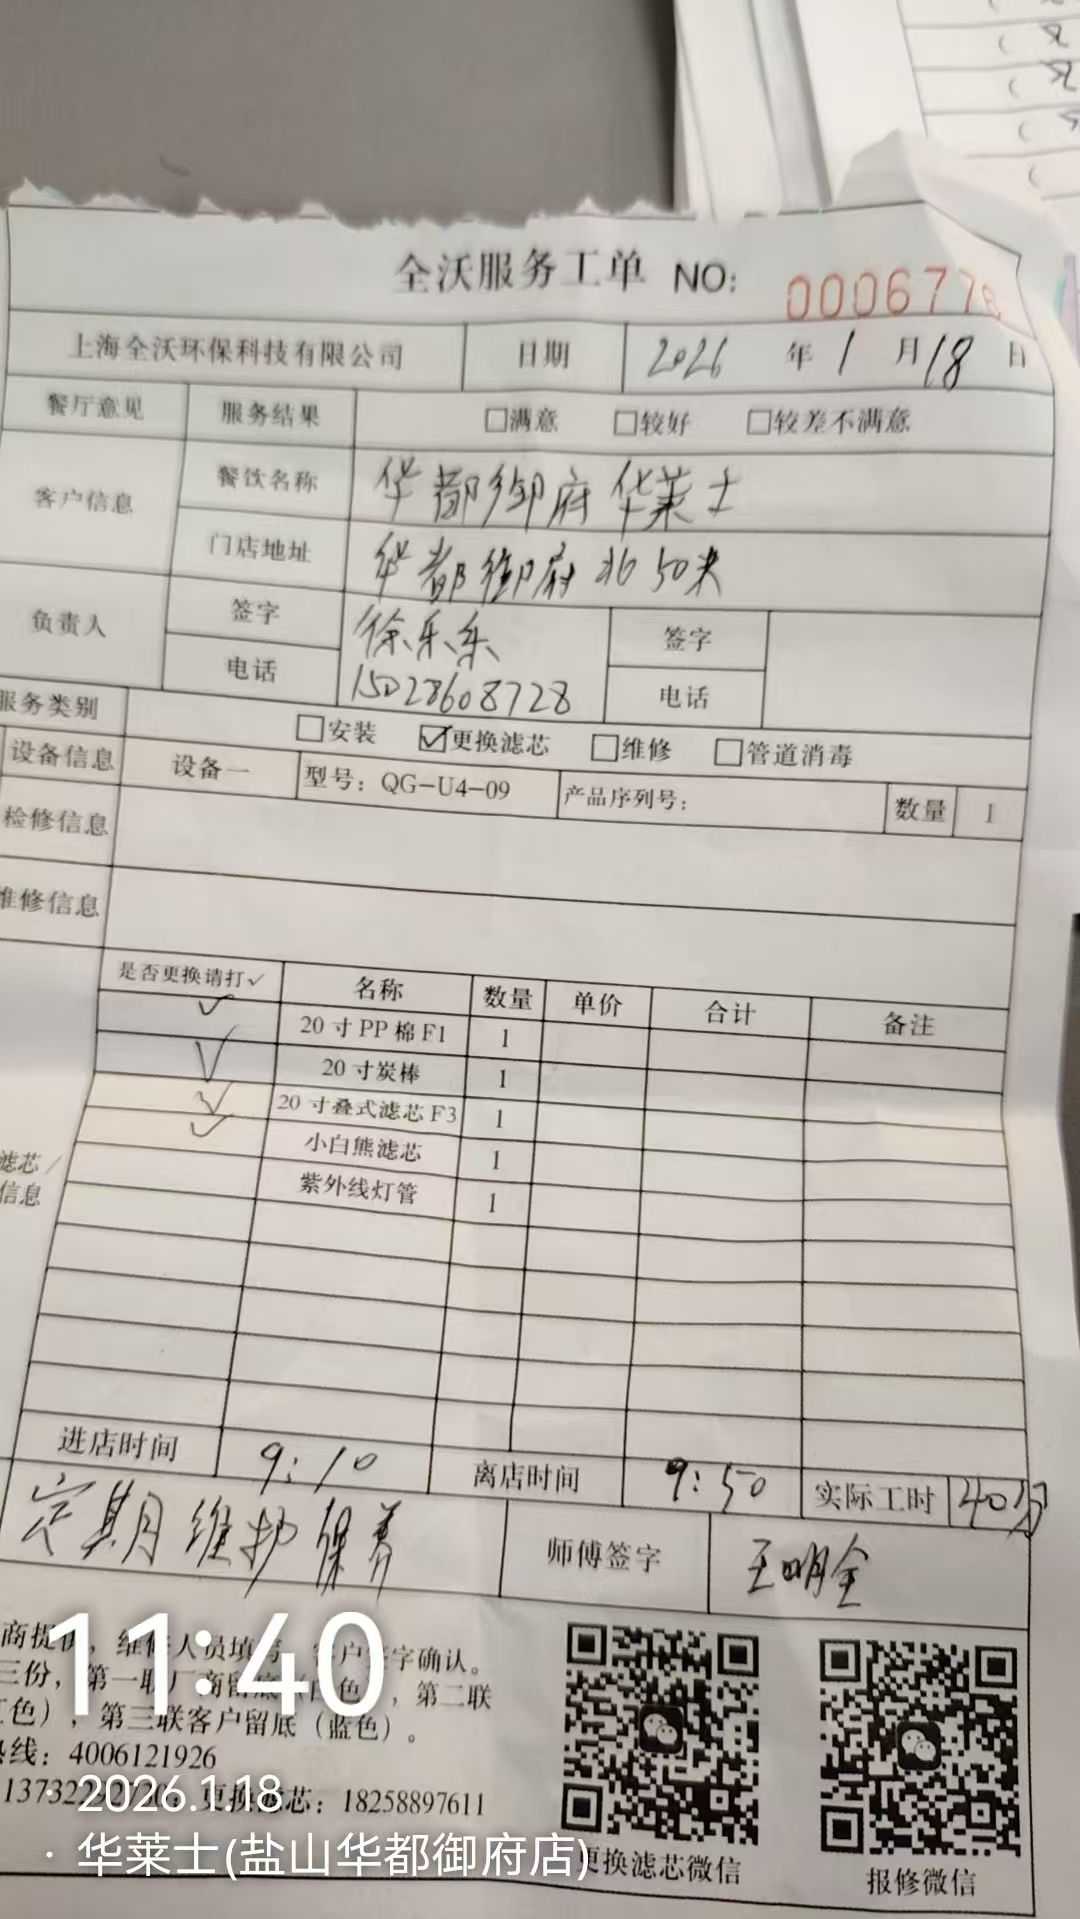 全沃服务工单 NO: 0006778
上海全沃环保科技有限公司 日期 2026 年 1 月 18 日
餐厅意见 服务结果 □满意 □较好 □较差不满意
客户信息 餐饮名称 华都御府华莱士
门店地址 华都御府北50米
负责人 签字 徐乐乐 签字
电话 15028608728 电话
服务类别 □安装 ☑更换滤芯 □维修 □管道消毒
设备信息 设备一 型号: QG-U4-09 产品序列号: 数量 1
检修信息
维修信息
是否更换请打✓ 名称 数量 单价 合计 备注
✓ 20寸PP棉F1 1
✓ 20寸炭棒 1
✓ 20寸叠式滤芯F3 1
✓ 小白熊滤芯 1
紫外线灯管 1
滤芯/
信息
进店时间 9:10 离店时间 9:50 实际工时 40分
定期维护保养 师傅签字 王明全
商提供, 维修人员填写, 客户签字确认。
三份, 第一联厂商留底(白色), 第二联
色), 第三联客户留底(蓝色)。
热线: 4006121926
更换滤芯: 18258897611
更换滤芯微信 报修微信
11:40
· 2026.1.18
· 华莱士(盐山华都御府店)